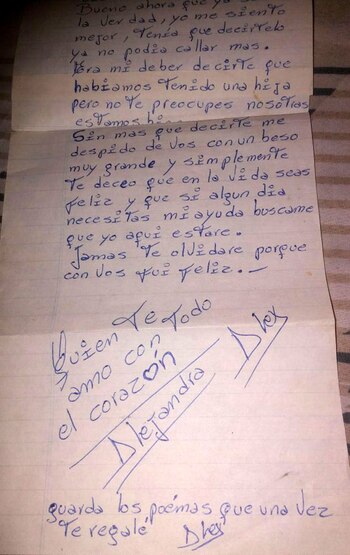 Bueno ahora que ya
la verdad, yo me siento
mejor, tenia que decirtelo
ya no podia callar mas.
Era mi deber decirte que
habiamos tenido una hija
pero no te preocupes nosotras
estamos
Sin mas que decirte me
despido de vos con un beso
muy grande y simplemente
te deceo que en la vida seas
feliz y que si algun dia
necesitas mi ayuda buscame
que yo aqui estare.
Jamas te olvidare porque
con vos fui feliz.-
Quien te
amo con todo
el corazón
Alejandra
guarda los poémas que una vez
te regalé